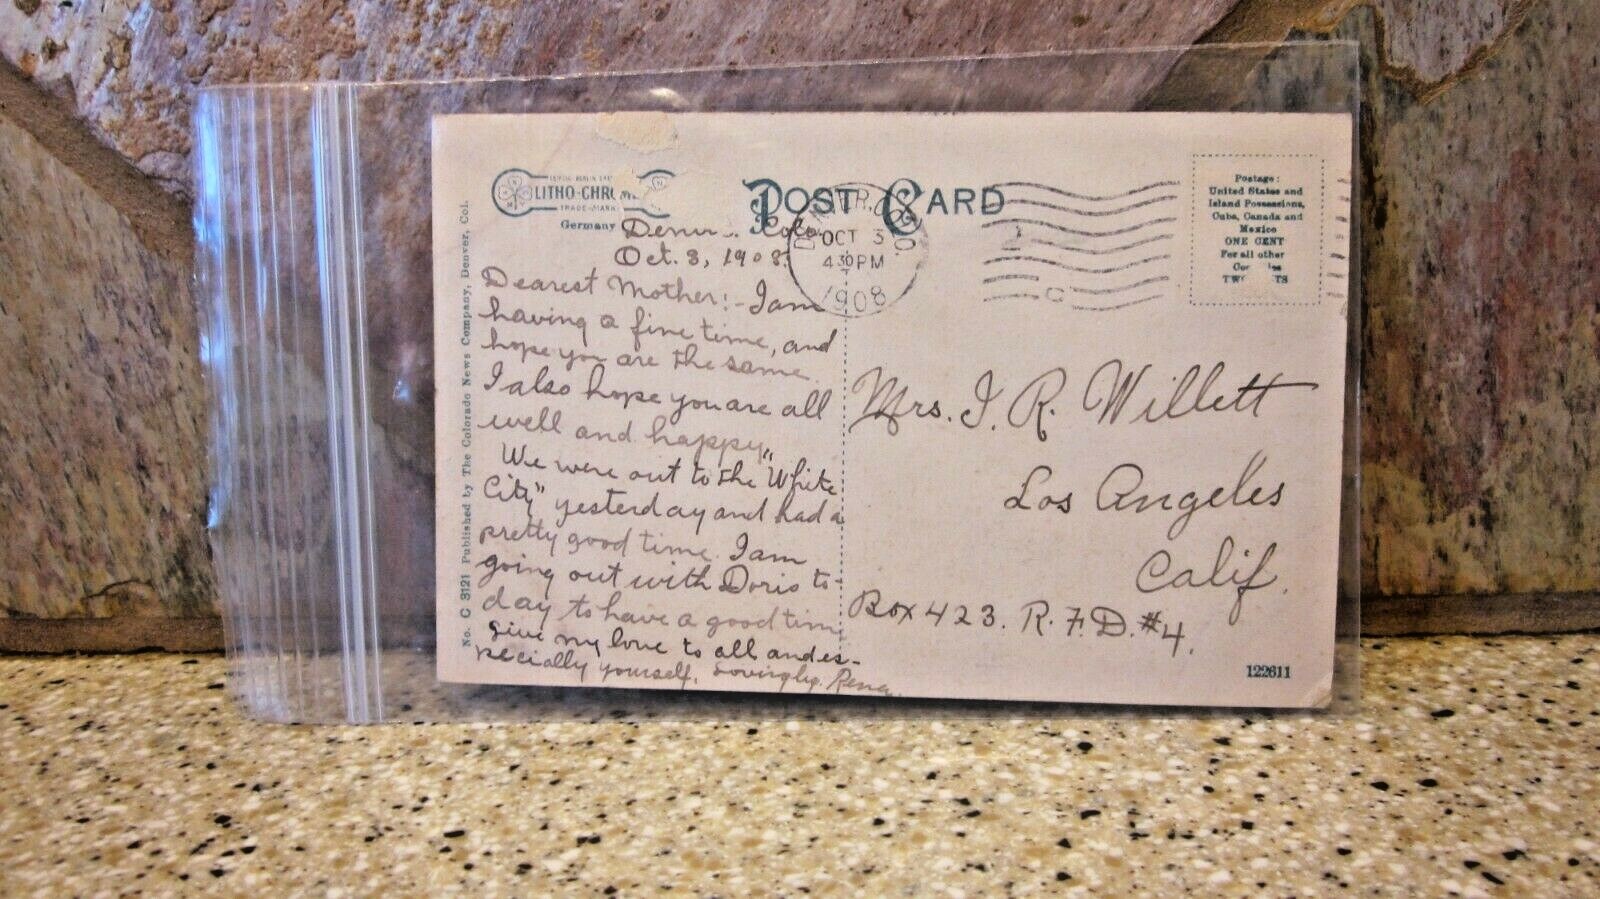 LITHO-CHROME
TRADE-MARK
Germany
POST CARD
Postage:
United States and
Island Possessions,
Cuba, Canada and
Mexico
ONE CENT
For all other
DENVER, COLO.
OCT 3
430PM
1908
Denver, Colo.
Oct. 3, 1908.
Dearest Mother:- I am
having a fine time, and
hope you are the same.
I also hope you are all
well and happy.
We were out to the "White
City" yesterday and had a
pretty good time. I am
going out with Doris to-
day to have a good time
give my love to all and es-
pecially yourself. Lovingly. Rena.
Mrs. I. R. Willett
Los Angeles
Calif.
Box 423. R. F. D. #4.
No. C 3121 Published by The Colorado News Company, Denver, Col.
122611